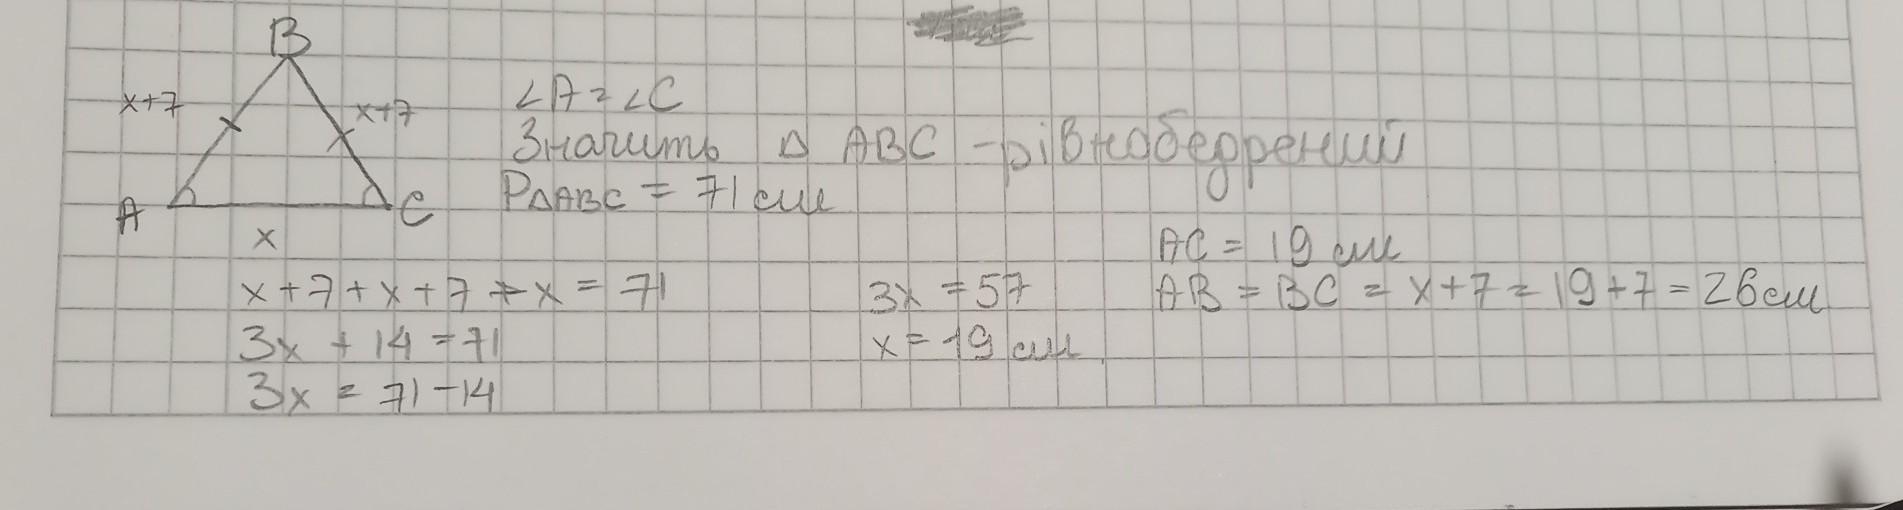 B
x+7
x+7
A
C
x
∠A = ∠C
Значить △ ABC - рівнобедрений
P△ABC = 71 см
x + 7 + x + 7 + x = 71
3x + 14 = 71
3x = 71 - 14
3x = 57
x = 19 см
AC = 19 см
AB = BC = x + 7 = 19 + 7 = 26 см